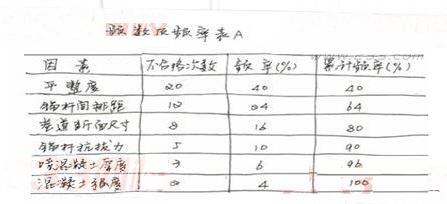 频数及频率表A
因素 不合格次数 频率(%) 累计频率(%)
平整度 20 40 40
锚杆间排距 12 24 64
巷道断面尺寸 8 16 80
锚杆抗拔力 5 10 90
喷混凝土厚度 3 6 96
混凝土强度 2 4 100